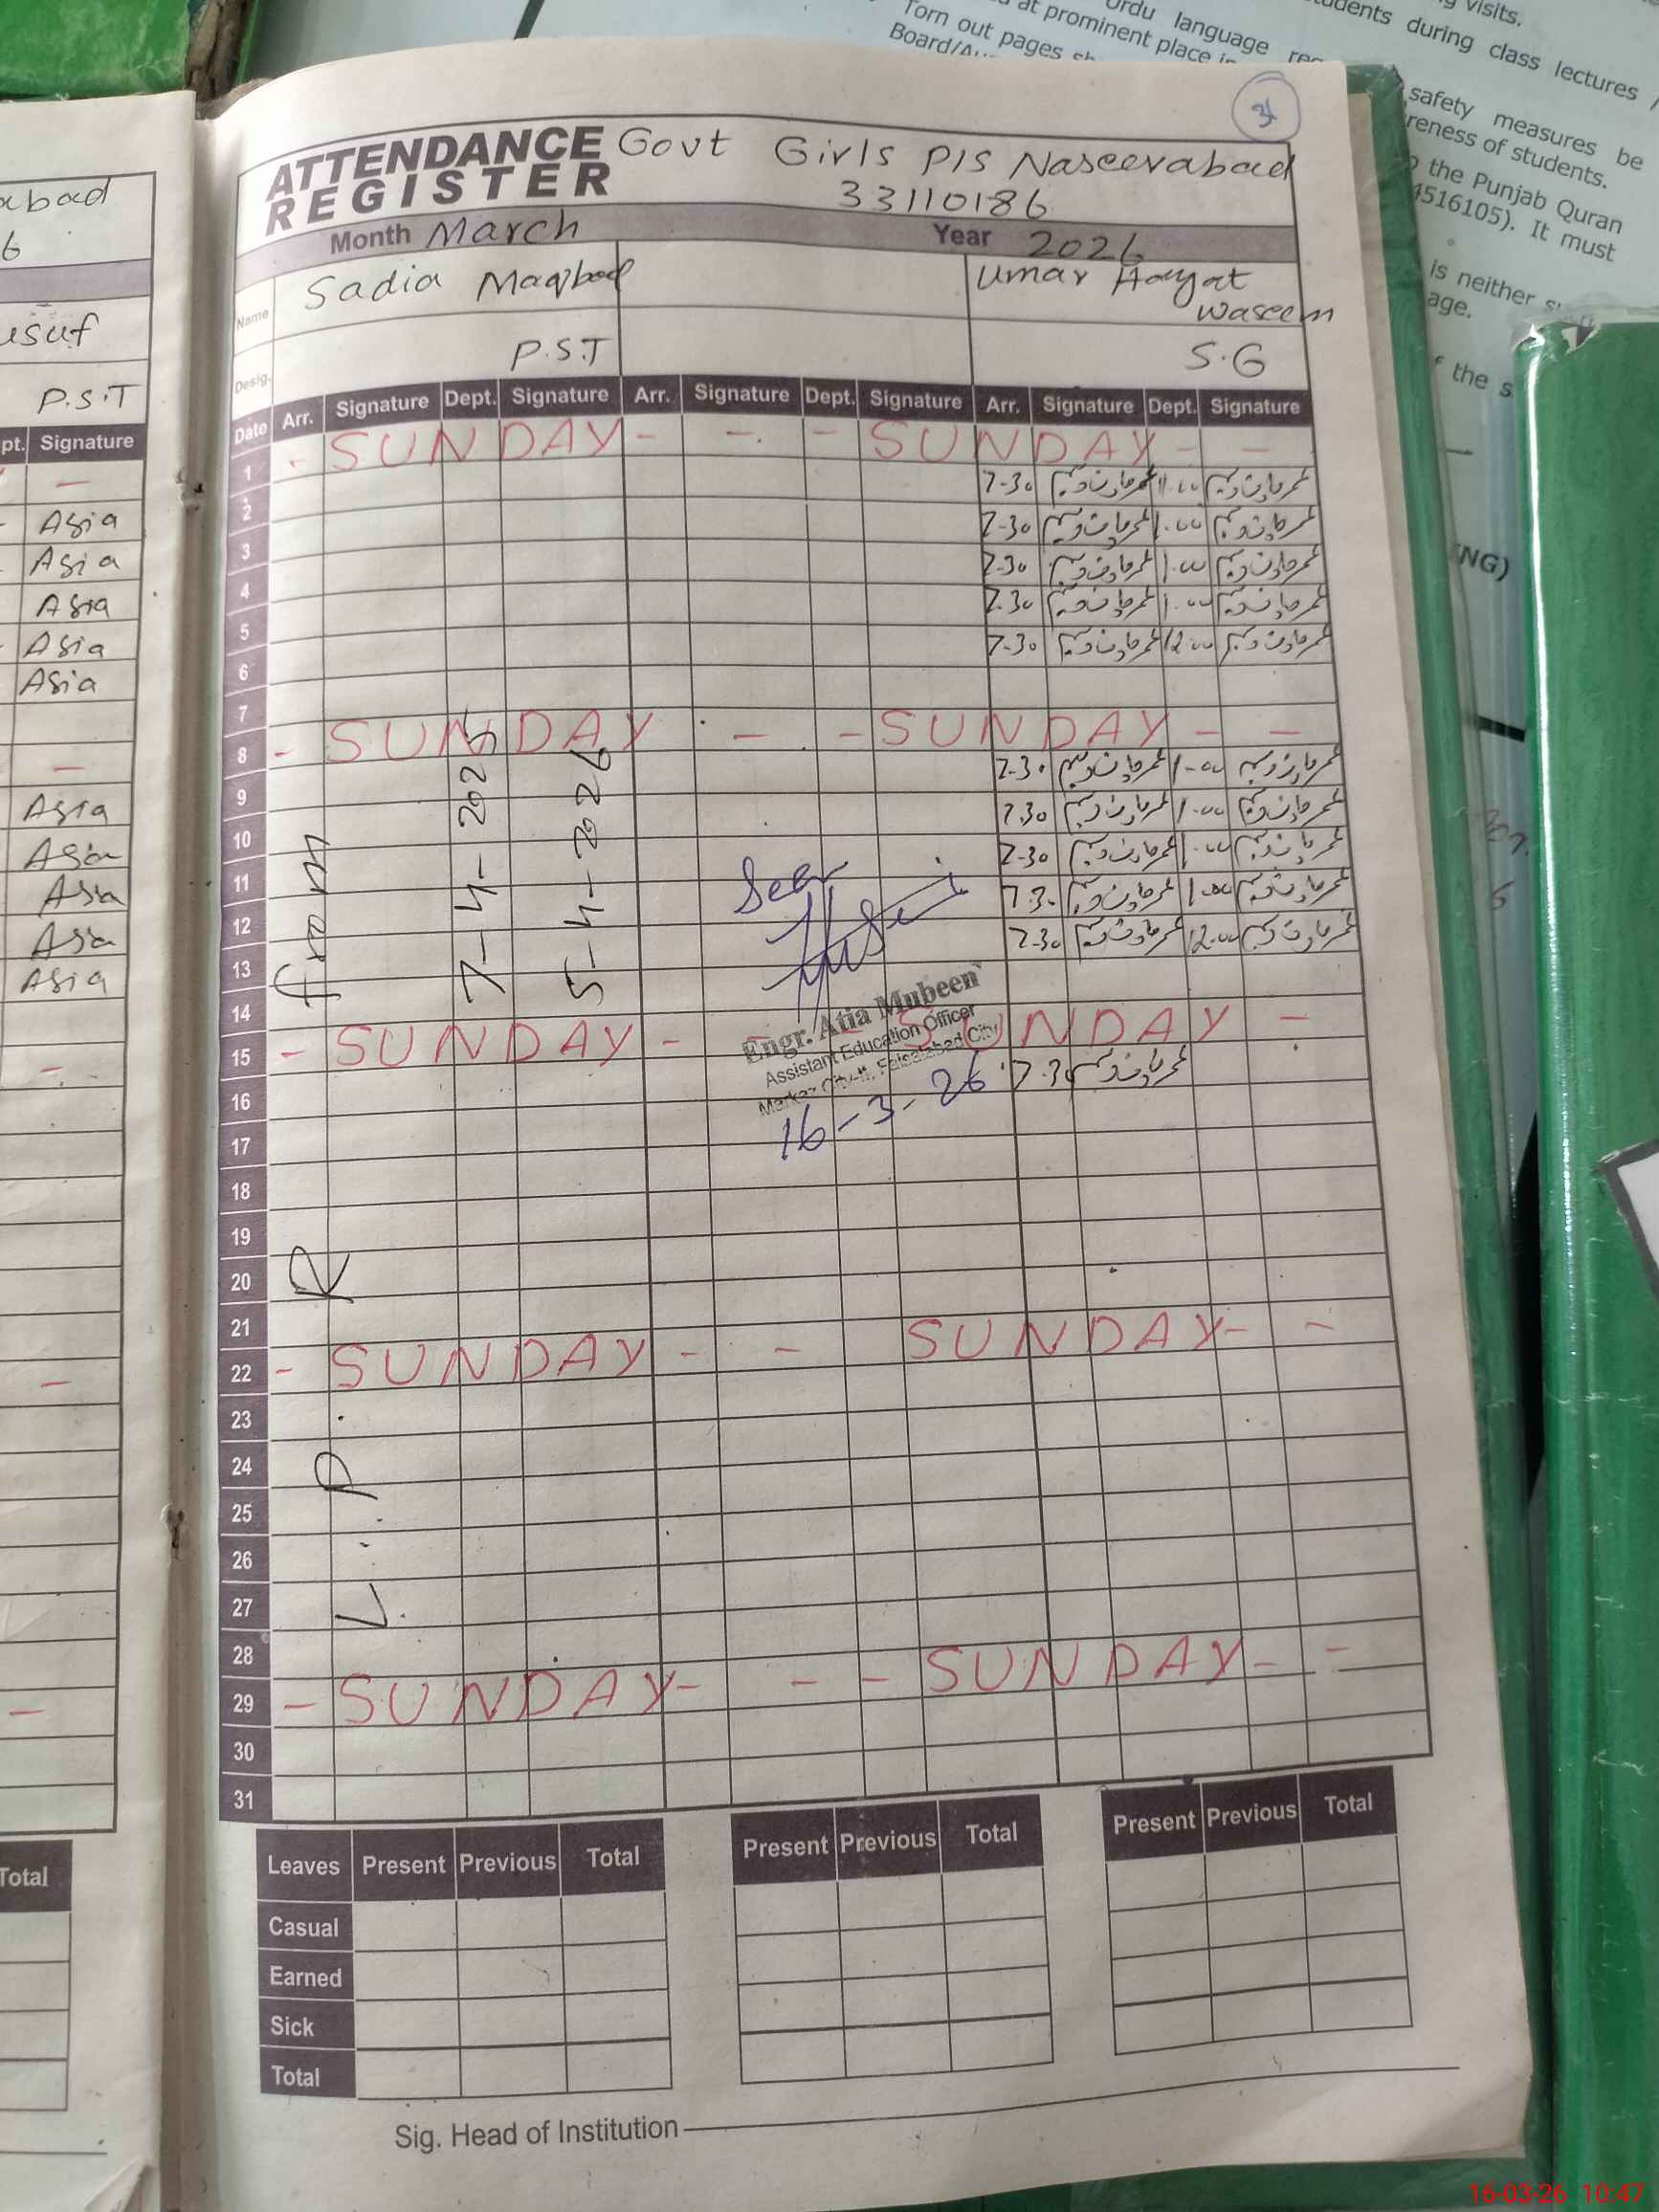 Urdu language
during class lectures /
at prominent place in
Torn out pages
safety measures be
awareness of students.
the Punjab Quran
4516105). It must
is neither
age.
the s
NG)
abad
6
usuf
P.S.T
pt. Signature
Asia
Asia
Asia
Asia
Asia
Asia
Asia
Asia
Asia
Asia
Total
ATTENDANCE REGISTER
Govt Girls P/S Naseerabad
33110186
Month March Year 2026
Name Sadia Maqbool Umar Hayat Waseem
Desig. P.S.T S.G
Date Arr. Signature Dept. Signature Arr. Signature Dept. Signature Arr. Signature Dept. Signature
1 - SUNDAY - - - SUNDAY - -
2 7-30 عمر حیات وسیم 11.00 عمر حیات وسیم
3 7-30 عمر حیات وسیم 1.00 عمر حیات وسیم
4 7-30 عمر حیات وسیم 1.00 عمر حیات وسیم
5 7.30 عمر حیات وسیم 1.00 عمر حیات وسیم
6 7-30 عمر حیات وسیم 12.00 عمر حیات وسیم
7
8 - SUNDAY - - SUNDAY - -
9 7-30 عمر حیات وسیم 1-00 عمر حیات وسیم
10 7.30 عمر حیات وسیم 1.00 عمر حیات وسیم
11 7-30 عمر حیات وسیم 1.00 عمر حیات وسیم
12 7.30 عمر حیات وسیم 1.00 عمر حیات وسیم
13 7-30 عمر حیات وسیم 12.00 عمر حیات وسیم
14
15 - SUNDAY - - - SUNDAY -
16 7.30 عمر حیات وسیم
17
18
19
20
21
22 - SUNDAY - - SUNDAY - -
23
24
25
26
27
28
29 - SUNDAY - - - SUNDAY - -
30
31
L.P.R from
7-4-2025
5-4-2026
Seen
Engr. Atia Mubeen
Assistant Education Officer
Markaz City-II, Faisalabad City
16-3-26
Leaves Present Previous Total Present Previous Total Present Previous Total
Casual
Earned
Sick
Total
Sig. Head of Institution
16-03-26 10:47